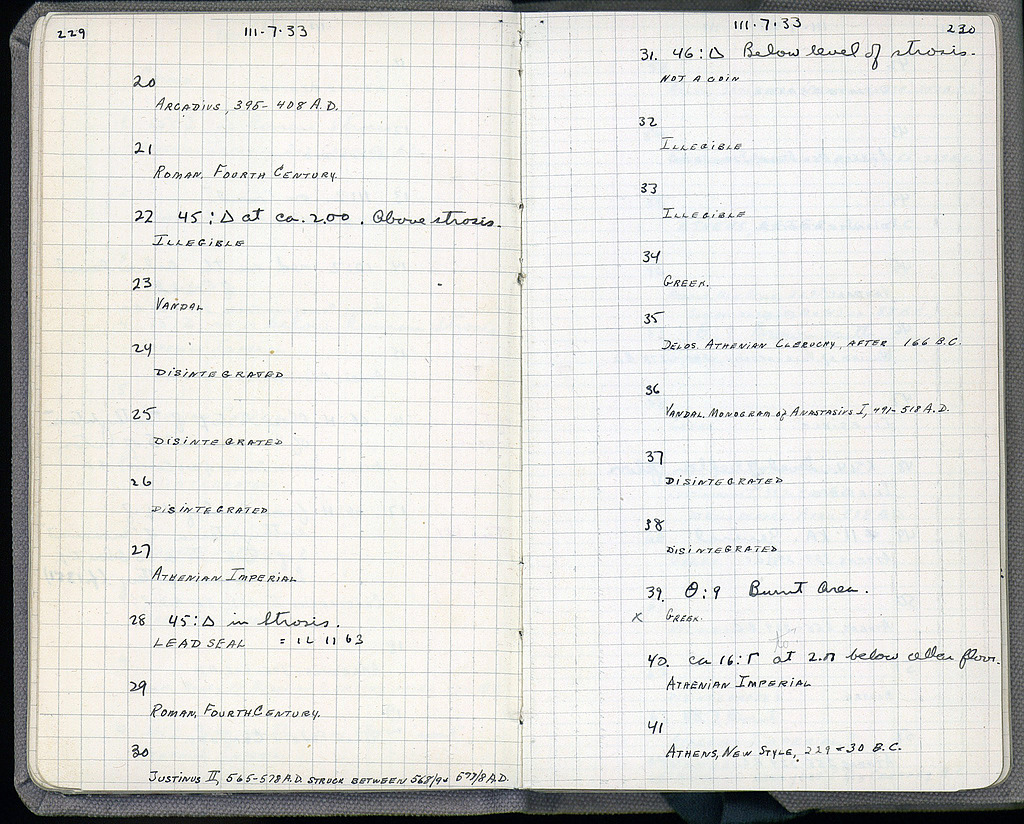 229
III·7·33
20
ARCADIUS, 395-408 A.D.
21
ROMAN. FOURTH CENTURY.
22 45:Δ at ca. 2.00. Above strosis.
ILLEGIBLE
23
VANDAL
24
DISINTEGRATED
25
DISINTEGRATED
26
DISINTEGRATED
27
ATHENIAN IMPERIAL
28 45:Δ in Strosis.
LEAD SEAL = IL 1163
29
ROMAN, FOURTH CENTURY.
30
JUSTINUS II, 565-578 A.D. STRUCK BETWEEN 568/9 577/8 A.D.
III·7·33
230
31. 46:Δ Below level of strosis.
NOT A COIN
32
ILLEGIBLE
33
ILLEGIBLE
34
GREEK.
35
DELOS. ATHENIAN CLERUCHY, AFTER 166 B.C.
36
VANDAL. MONOGRAM of ANASTASIUS I, 491-518 A.D.
37
DISINTEGRATED
38
DISINTEGRATED
39. Θ:9 Burnt Area.
X GREEK.
40. ca 16:Γ at below cellar floor.
ATHENIAN IMPERIAL
41
ATHENS, NEW STYLE, 229-30 B.C.